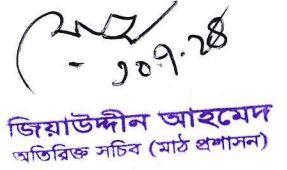 জিয়াউদ্দীন আহমেদ
অতিরিক্ত সচিব (মাঠ প্রশাসন)